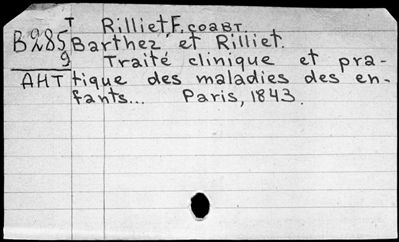 T Rilliet, F. соавт.
B285 Barthez, et Rilliet.
9 Traité clinique et pra-
AHT tique des maladies des en-
fants... Paris, 1843.